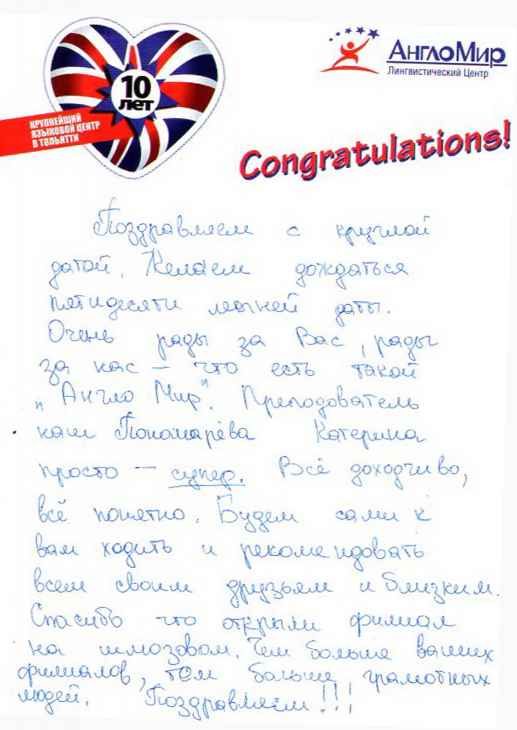 10
лет
КРУПНЕЙШИЙ
ЯЗЫКОВОЙ ЦЕНТР
В ТОЛЬЯТТИ
АнглоМир
Лингвистический Центр
Congratulations!
Поздравляем с круглой
датой. Желаем дождаться
пятидесяти летней даты.
Очень рады за Вас, рады
за нас – что есть такой
„Англо Мир". Преподователь
наш Пономарёва Катерина
просто – супер. Всё доходчиво,
всё понятно. Будем сами к
вам ходить и рекомендовать
всем своим друзьям и близким.
Спасибо что открыли филиал
на шлюзовом. Чем больше ваших
филиалов, тем больше грамотных
людей. Поздравляем!!!